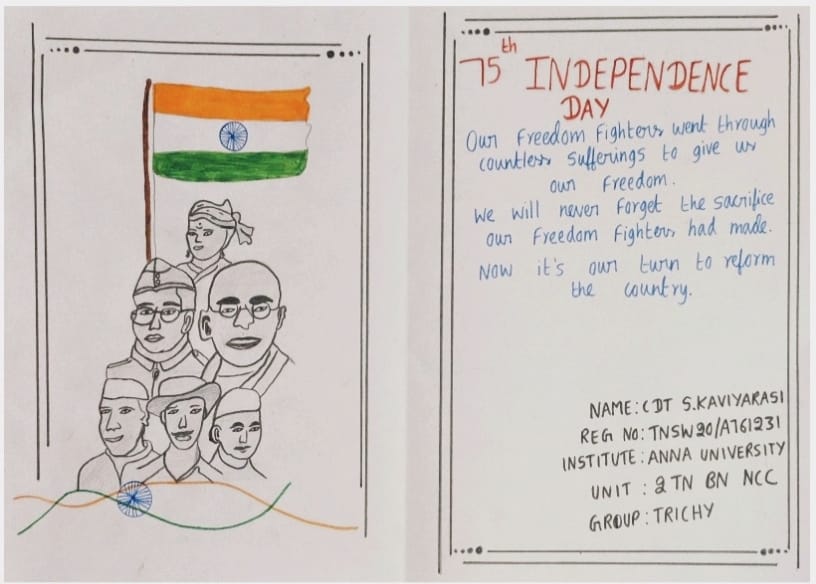 75th INDEPENDENCE
DAY
Our Freedom Fighters went through
countless sufferings to give us
our freedom.
We will never forget the sacrifice
our Freedom Fighters had made.
Now it's our turn to reform
the country.
NAME: CDT S.KAVIYARASI
REG NO: TNSW20/A761231
INSTITUTE: ANNA UNIVERSITY
UNIT : 2 TN BN NCC
GROUP: TRICHY